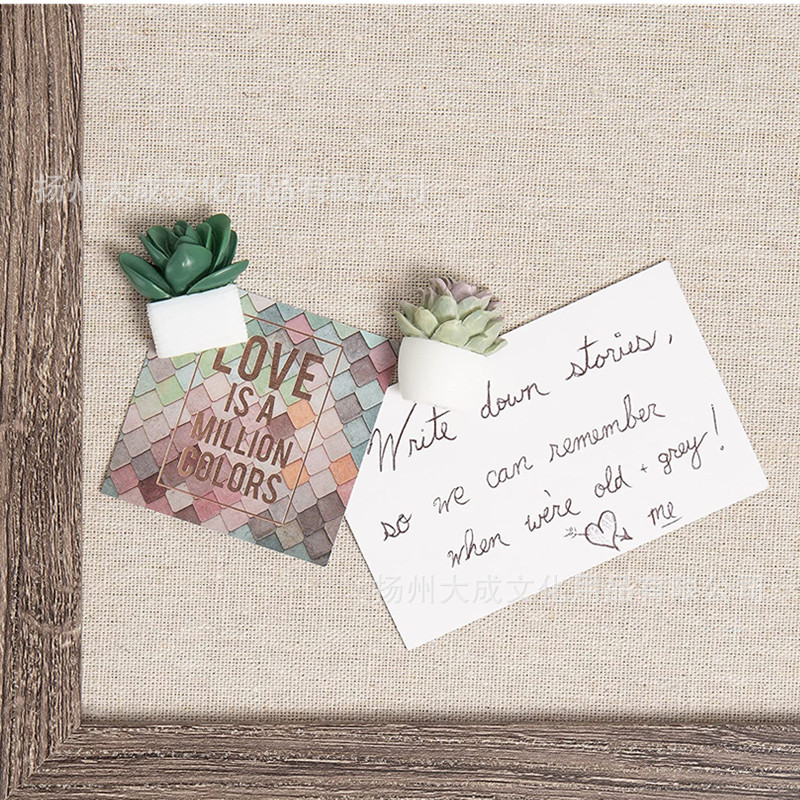 扬州大成文化用品有限公司
LOVE
IS A
MILLION
COLORS
Write down stories,
so we can remember
when we're old + grey!
me
扬州大成文化用品有限公司